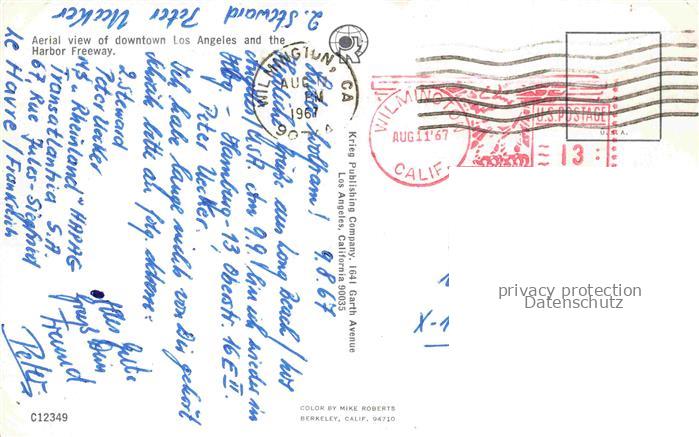 2. Steward Peter Uecker
Aerial view of downtown Los Angeles and the
Harbor Freeway.
9.8.67
Gruß aus Long Beach /
9.9. bin ich wieder in
Hbg - Hamburg - 13, 16 E II.
Peter Uecker.
Ich habe lange nicht von Dir gehört
Schreib bitte an folg. Adresse:
2. Steward
Peter Uecker
M/S "Rheinland" HAPAG
Transatlantica S.A.
67 Rue Jules-Siegfried
Le Havre / Frankreich
Alles Gute
Dein
Freund
Peter.
WILMINGTON, CA
AUG
1967
Krieg Publishing Company, 1641 Garth Avenue
Los Angeles, California 90035
WILMINGTON
AUG 11 '67
CALIF.
U.S. POSTAGE
13
U.S.A.
privacy protection
Datenschutz
X-1
C12349
COLOR BY MIKE ROBERTS
BERKELEY, CALIF. 94710